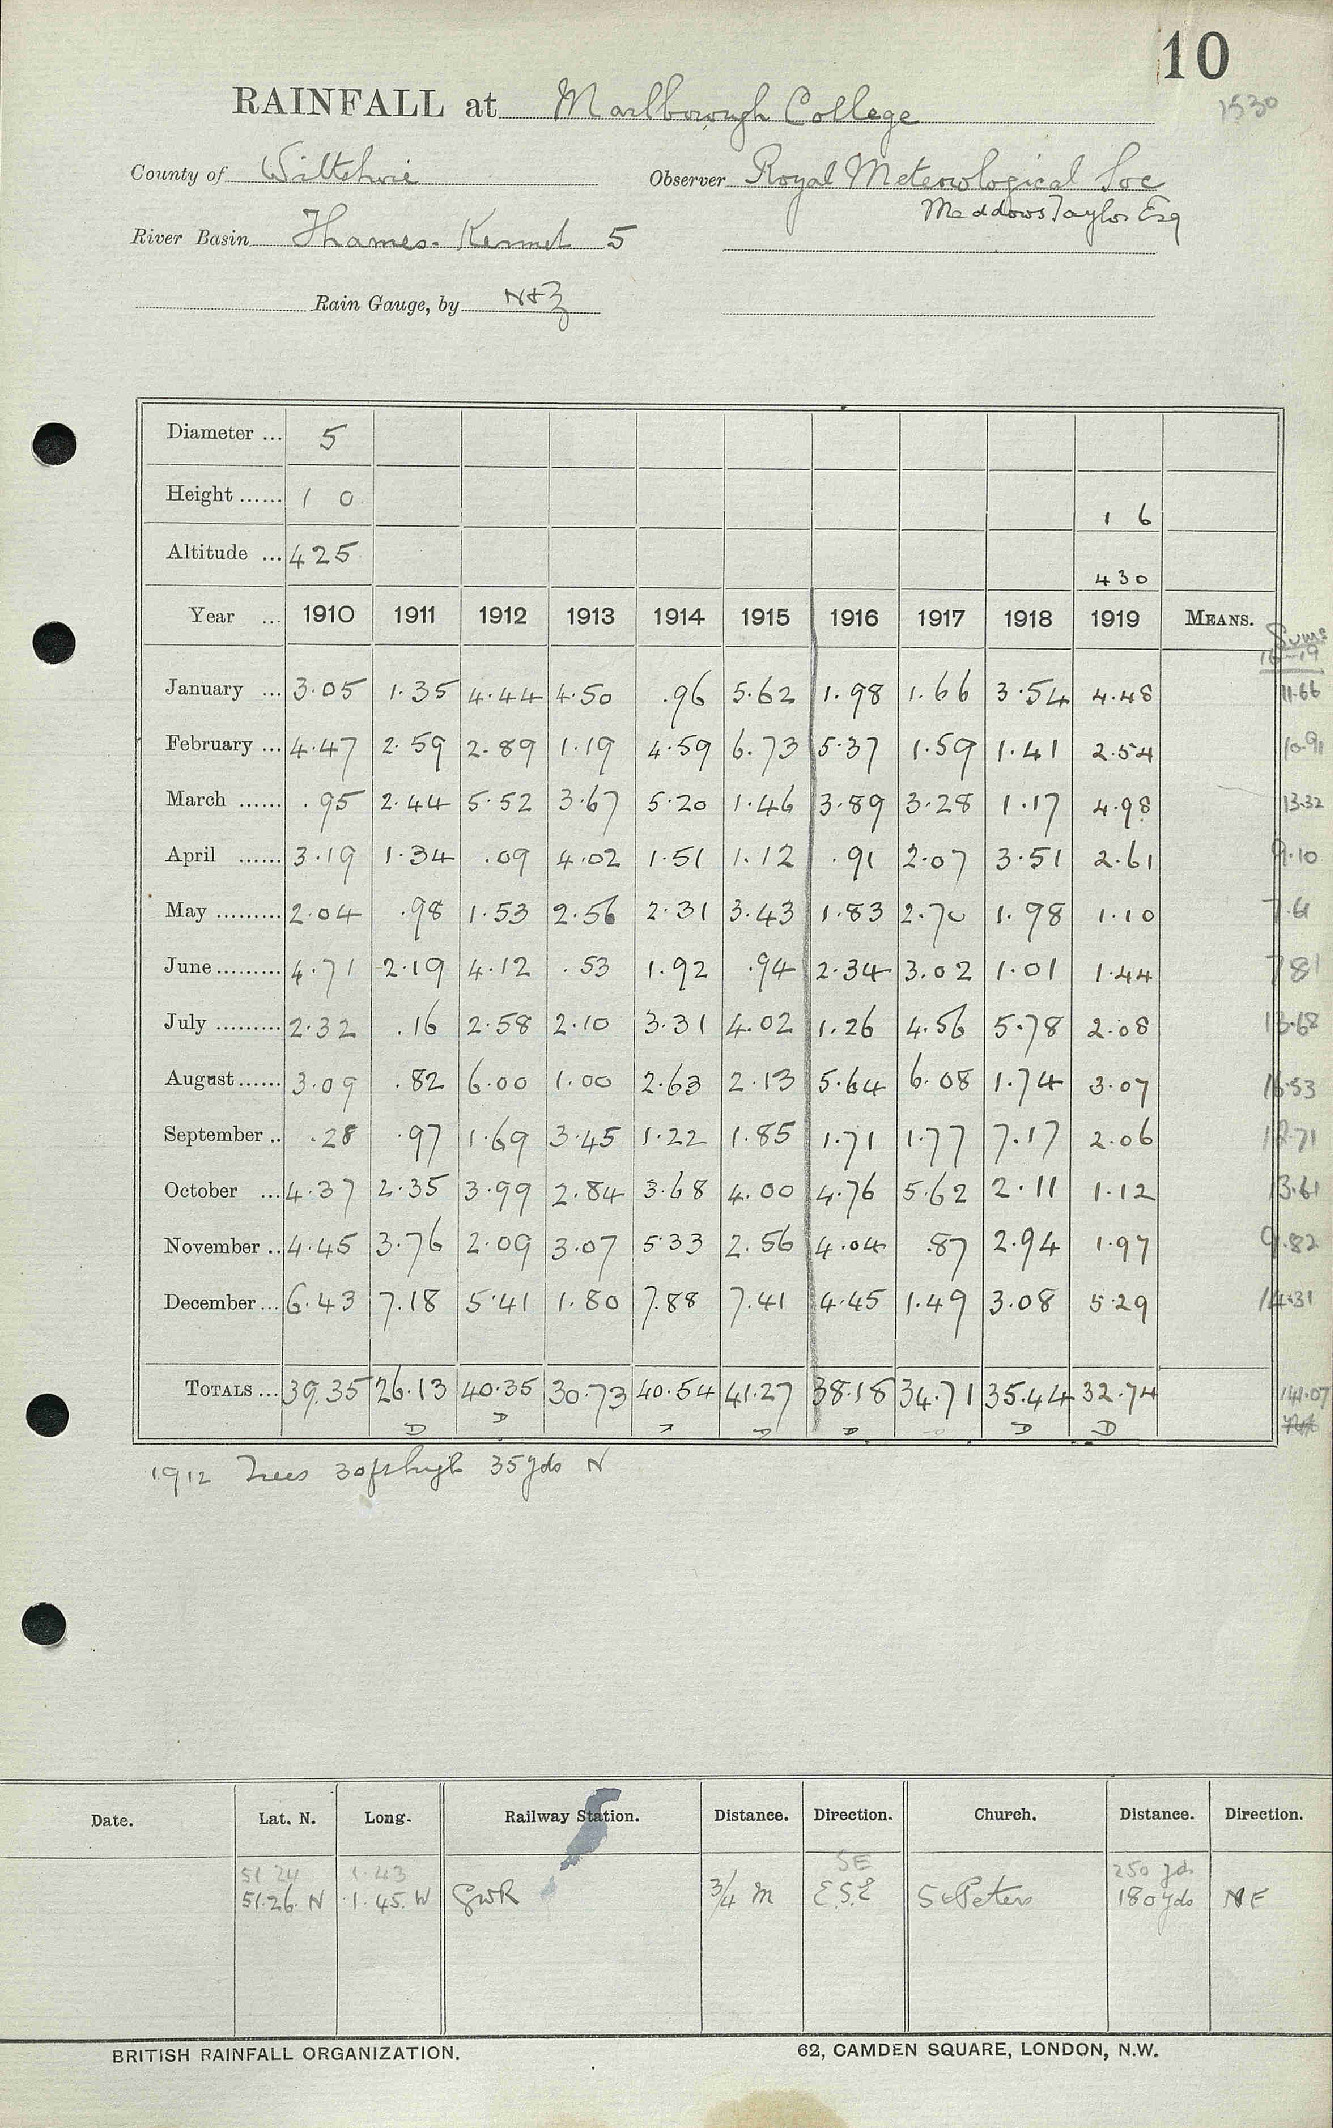 10
1530
RAINFALL at Marlborough College
County of Wiltshire Observer Royal Meteorological Soc
Meddows Taylor Esq
River Basin Thames - Kennet 5
Rain Gauge, by N+Z
Diameter ... 5
Height ...... 1 0 1 6
Altitude ... 425 430
Year ... 1910 1911 1912 1913 1914 1915 1916 1917 1918 1919 MEANS. Sums
16-19
January ... 3.05 1.35 4.44 4.50 .96 5.62 1.98 1.66 3.54 4.48 11.66
February ... 4.47 2.59 2.89 1.19 4.59 6.73 5.37 1.59 1.41 2.54 10.91
March ...... .95 2.44 5.52 3.67 5.20 1.46 3.89 3.28 1.17 4.98 13.32
April ...... 3.19 1.34 .09 4.02 1.51 1.12 .91 2.07 3.51 2.61 9.10
May ......... 2.04 .98 1.53 2.56 2.31 3.43 1.83 2.70 1.98 1.10 7.61
June ......... 4.71 2.19 4.12 .53 1.92 .94 2.34 3.02 1.01 1.44 7.81
July ......... 2.32 .16 2.58 2.10 3.31 4.02 1.26 4.56 5.78 2.08 13.68
August ...... 3.09 .82 6.00 1.00 2.63 2.13 5.64 6.08 1.74 3.07 16.53
September .. .28 .97 1.69 3.45 1.22 1.85 1.71 1.77 7.17 2.06 12.71
October ... 4.37 2.35 3.99 2.84 3.68 4.00 4.76 5.62 2.11 1.12 13.61
November .. 4.45 3.76 2.09 3.07 5.33 2.56 4.04 .87 2.94 1.97 9.82
December ... 6.43 7.18 5.41 1.80 7.88 7.41 4.45 1.49 3.08 5.29 14.31
TOTALS ... 39.35 26.13 40.35 30.73 40.54 41.27 38.18 34.71 35.44 32.74 141.07
D D D D D D D
1912 Trees 30ft high 35yds N
Date. Lat. N. Long. Railway Station. Distance. Direction. Church. Distance. Direction.
51 24 1.43 SE 250 yds
51.26 N 1.45. W GWR 3/4 m E.S.E St Peters 180yds NE
BRITISH RAINFALL ORGANIZATION. 62, CAMDEN SQUARE, LONDON, N.W.